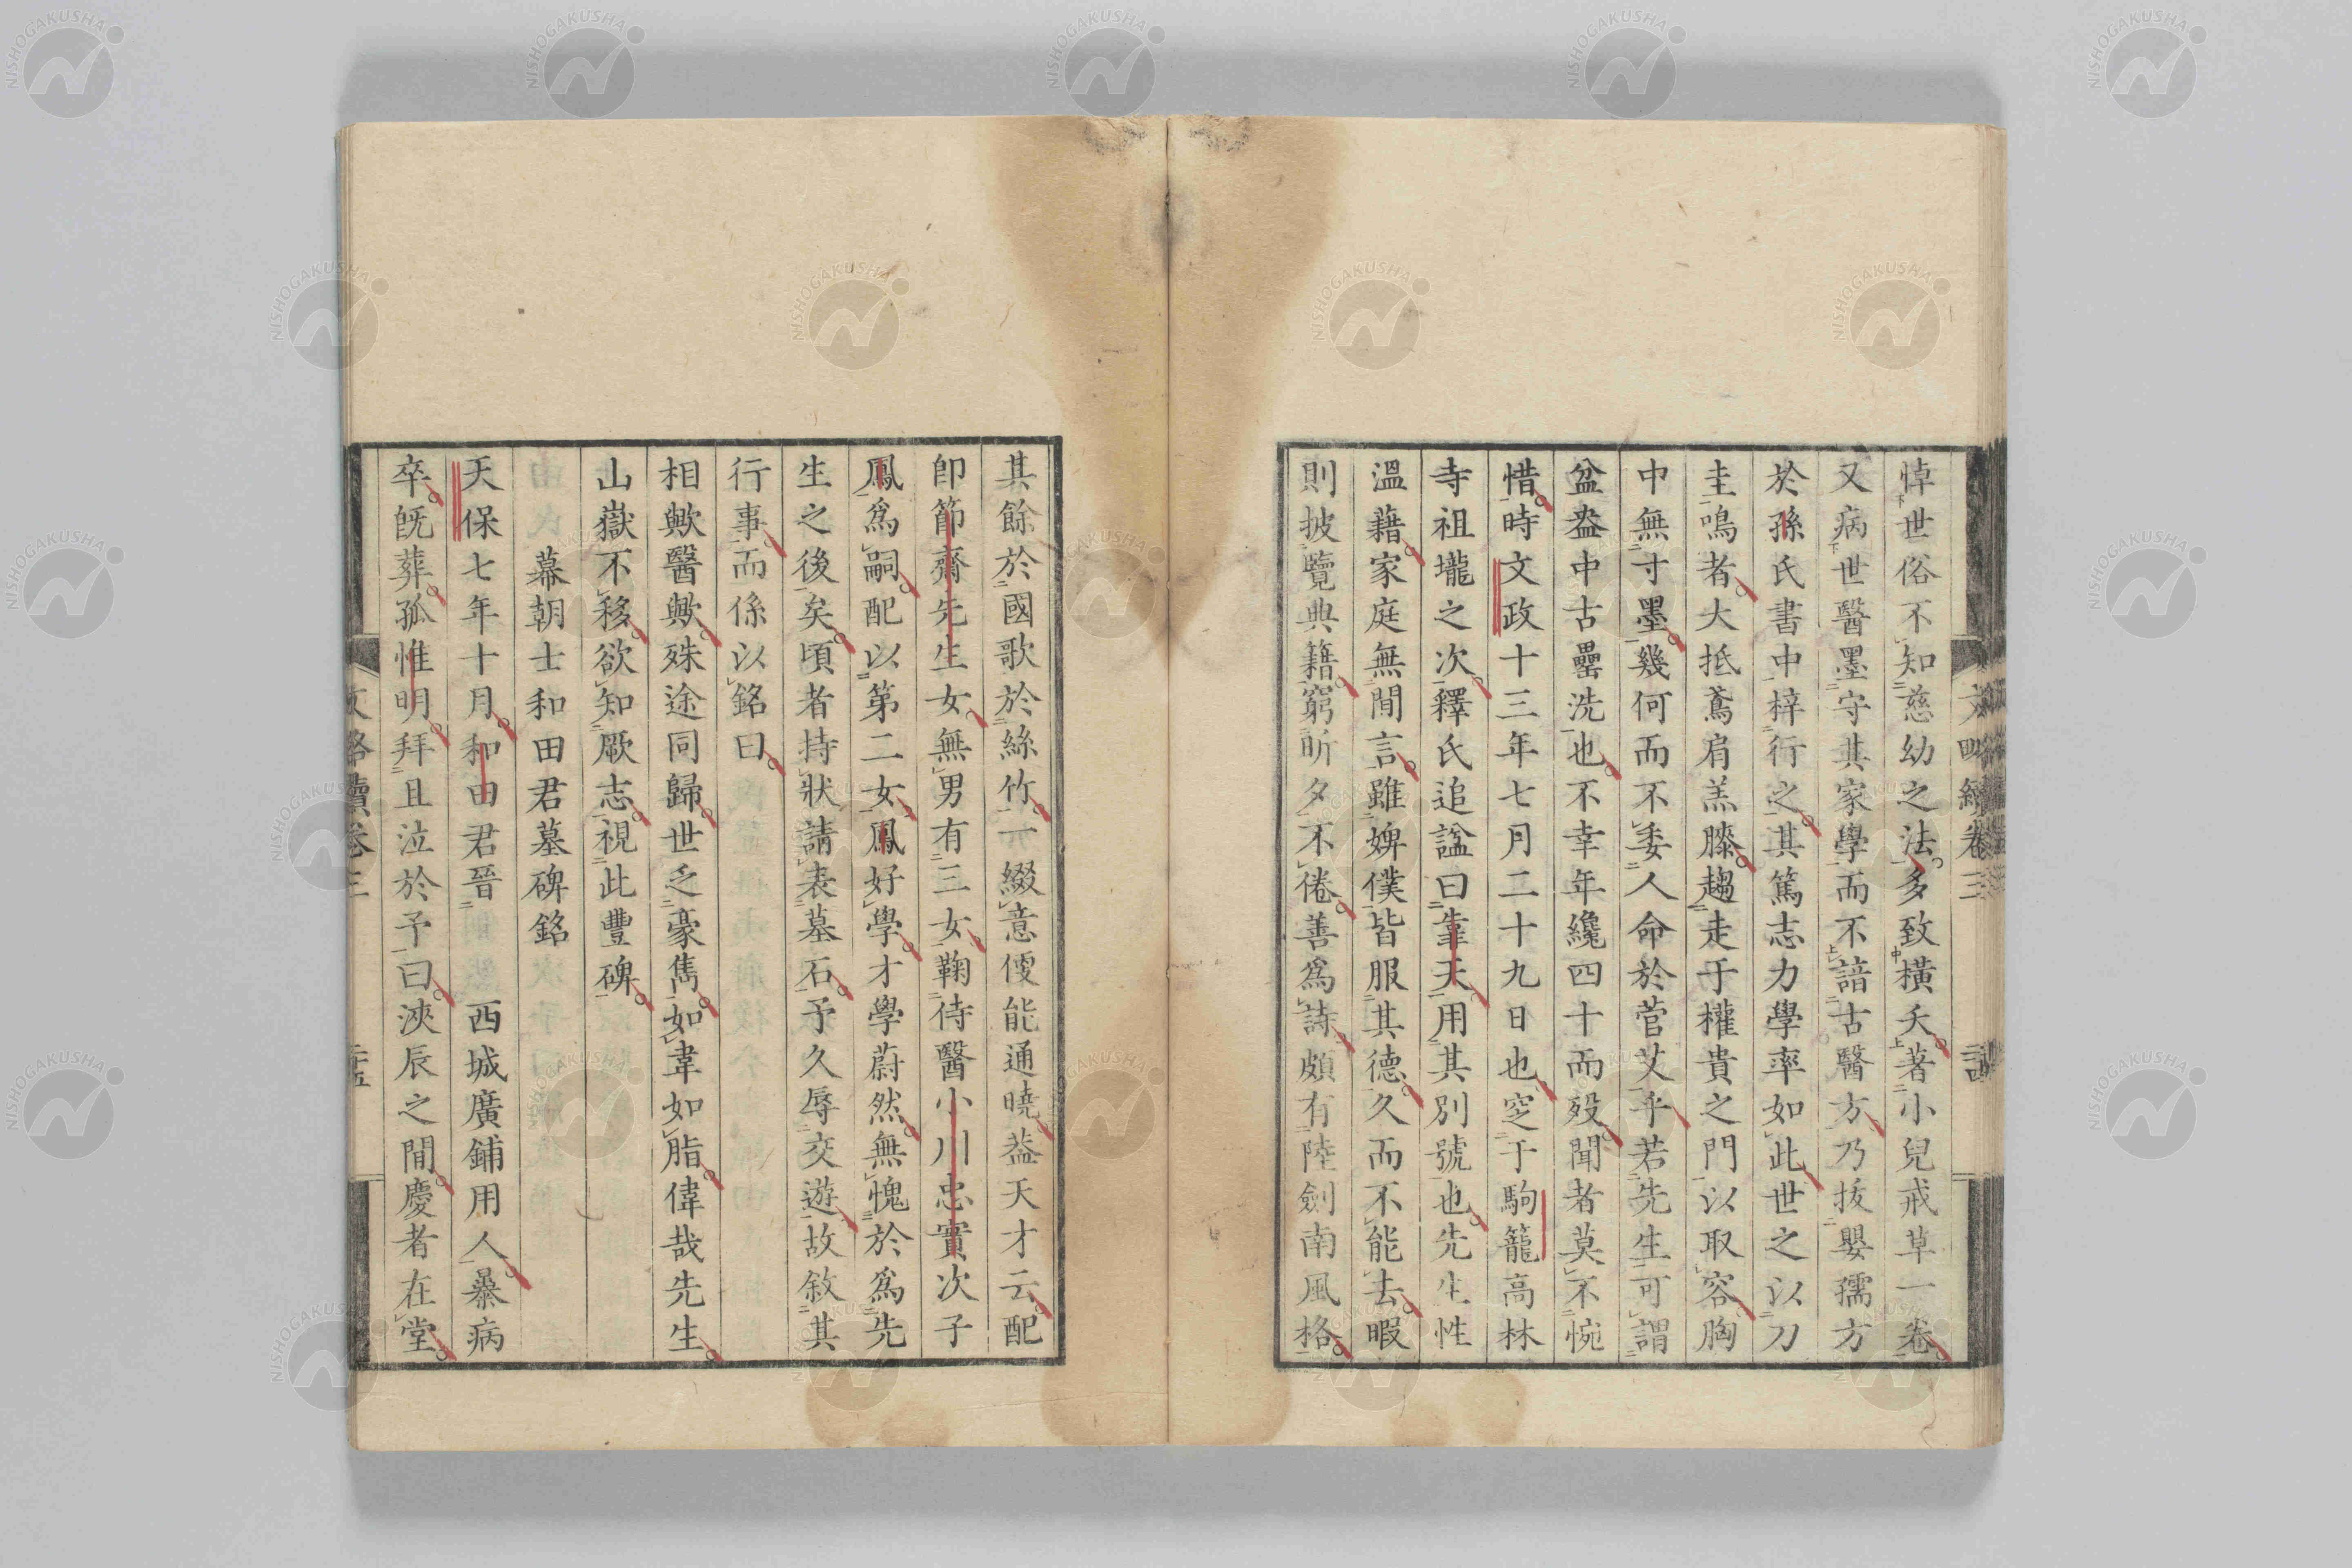 悼世俗不知慈幼之法多致橫夭著小兒戒草一卷
又病世醫墨守其家學而不諳古醫方乃拔嬰孺方
於孫氏書中梓行之其篤志力學率如此世之以刀
圭鳴者大抵鳶肩羔膝趨走于權貴之門以取容胸
中無寸墨幾何而不委人命於菅艾乎若先生可謂
盆盎中古罍洗也不幸年纔四十而歿聞者莫不惋
惜時文政十三年七月二十九日也窆于駒籠高林
寺祖壠之次釋氏追諡曰靠天用其別號也先生性
溫藉家庭無閒言雖婢僕皆服其德久而不能去暇
則披覽典籍窮昕夕不倦善爲詩頗有陸劍南風格
文略續卷三
其餘於國歌於絲竹一綴意便能通曉葢天才云配
卽節齋先生女無男有三女一鞠侍醫小川忠實次子
鳳爲嗣配以第二女鳳好學才學蔚然無愧於爲先
生之後矣頃者持狀請表墓石予久辱交遊故敘其
行事而係以銘曰
相歟醫歟殊途同歸世乏豪雋如韋如脂偉哉先生
山嶽不移欲知厥志視此豐碑
幕朝士和田君墓碑銘
天保七年十月和田君晉 西城廣鋪用人暴病
卒旣葬孤惟明拜且泣於予曰浹辰之間慶者在堂
文略續卷三